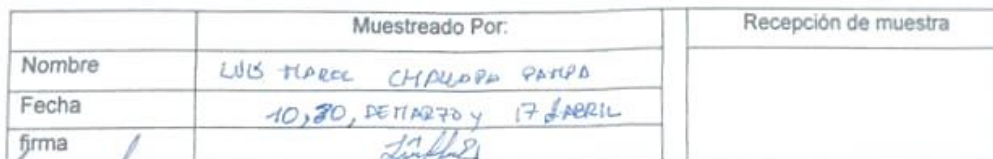 Muestreado Por:
Recepción de muestra
Nombre
LUIS MARCE CHALLAPA PAMPA
Fecha
10, 20, DE MARZO y 17 d ABRIL
firma